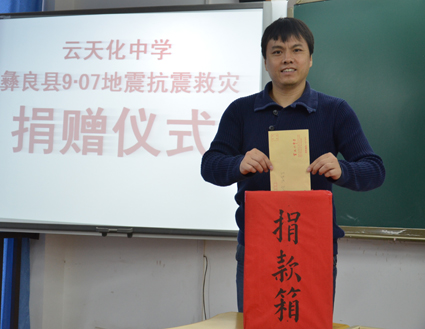 云天化中学
彝良县9·07地震抗震救灾
捐赠仪式
捐款箱